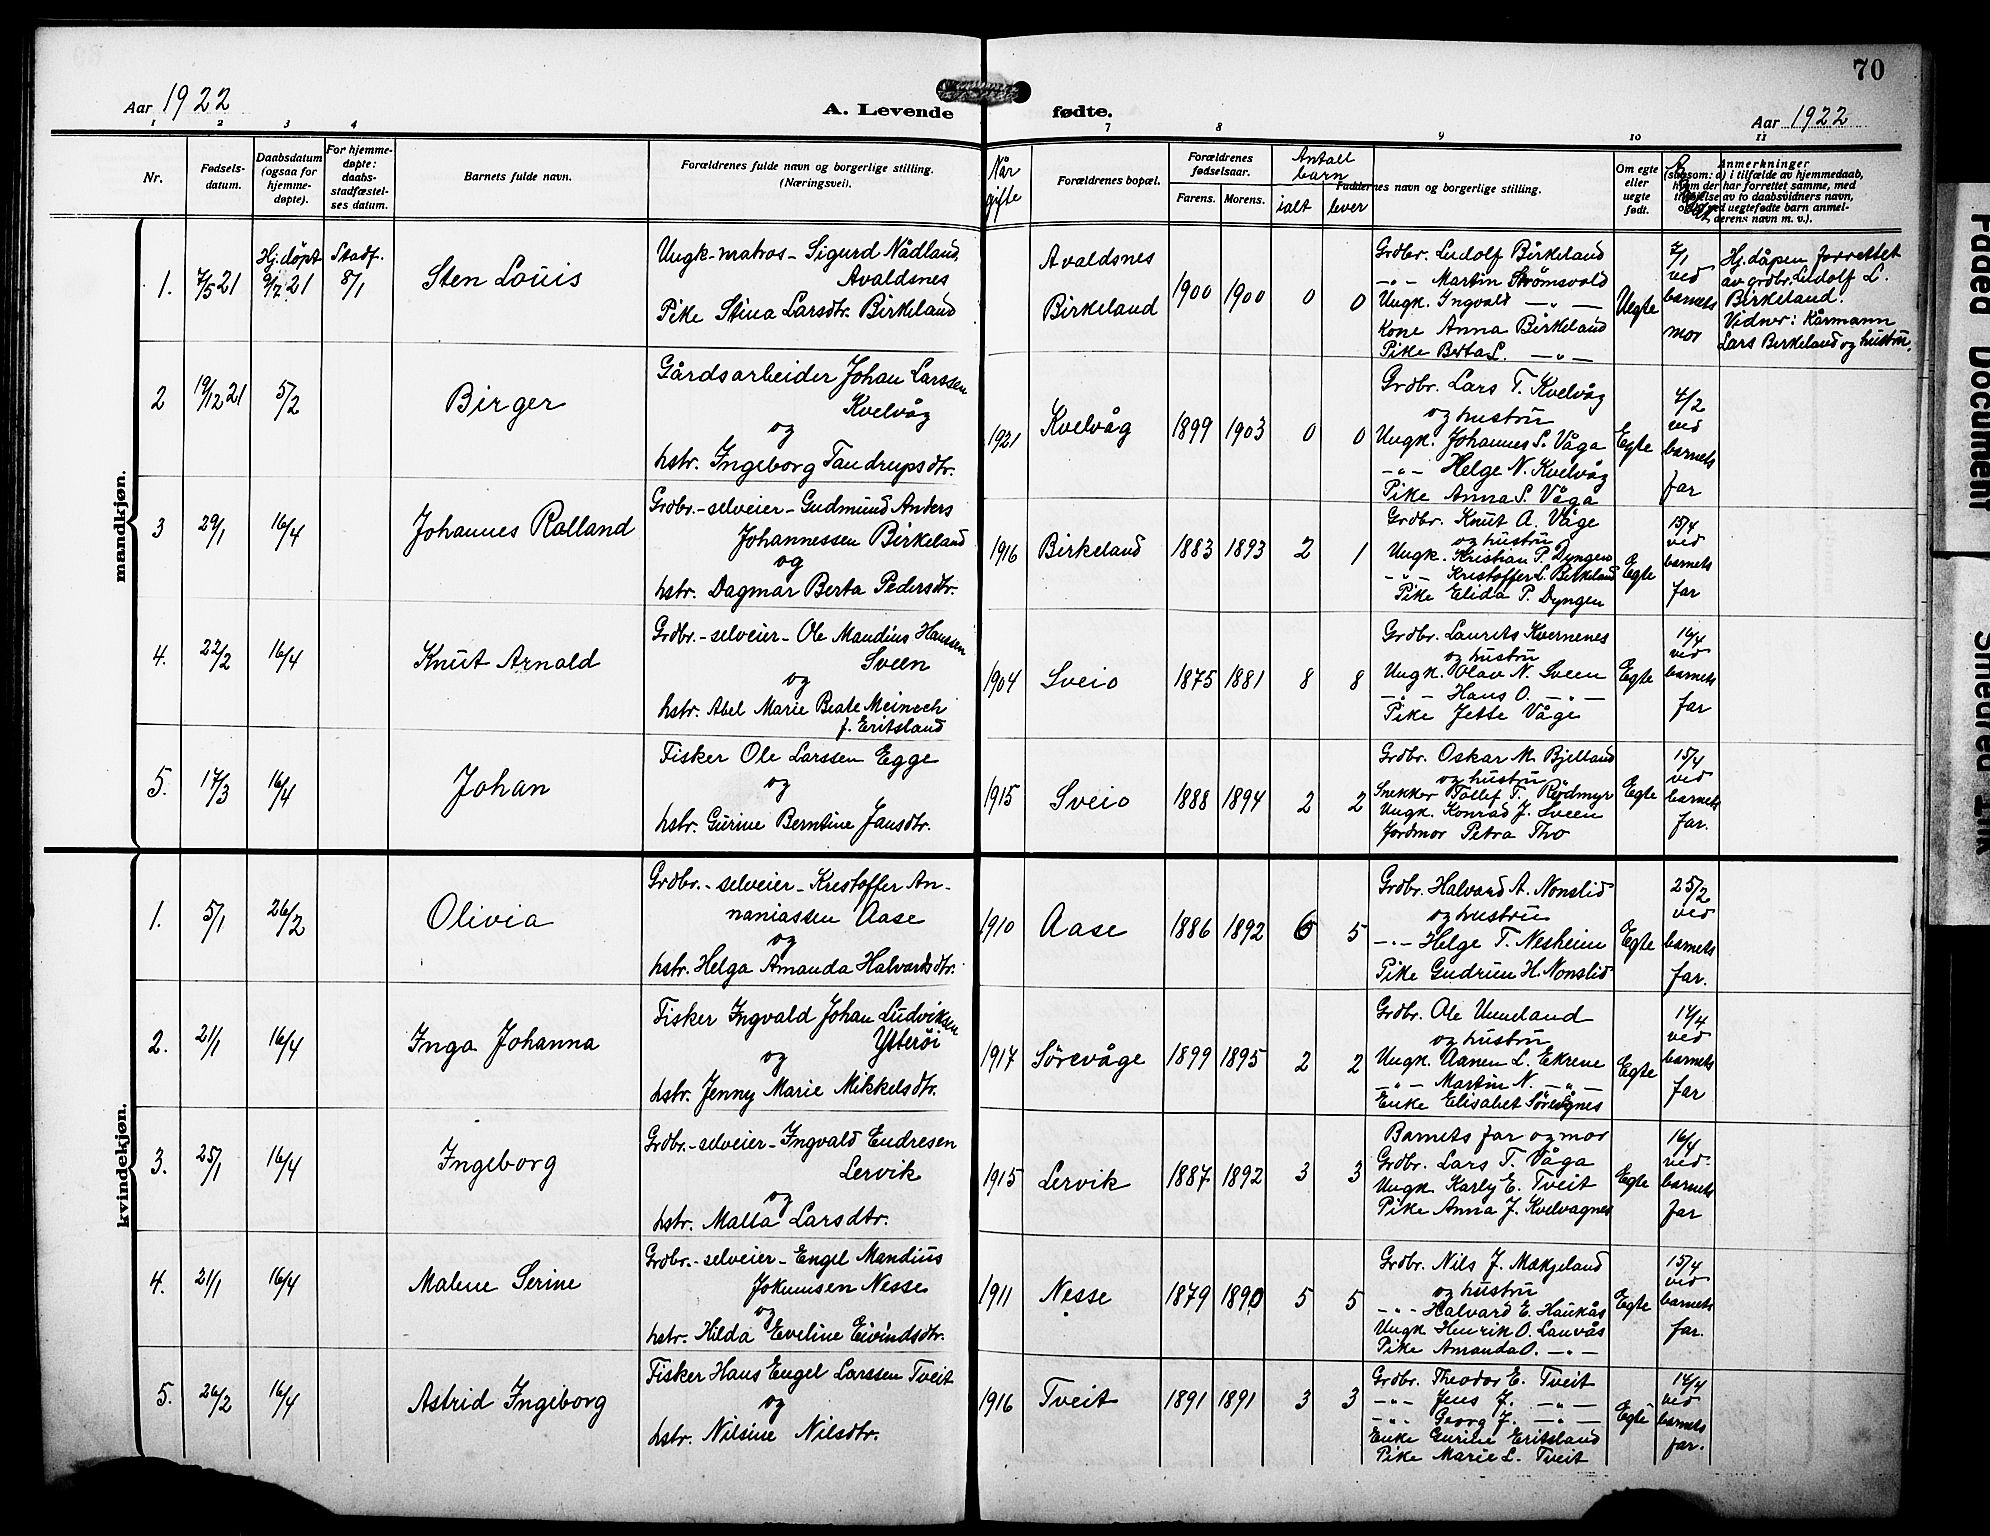 70
Aar 1922
A. Levende fødte.
Aar 1922
1 2 3 4 7 8 9 10 11
Nr.
Fødsels-
datum.
Daabsdatum
(ogsaa for
hjemme-
døpte).
For hjemme-
døpte:
daabs-
stadfæstel-
ses datum.
Barnets fulde navn.
Forældrenes fulde navn og borgerlige stilling.
(Næringsvei).
Når
gifte
Forældrenes bopæl.
Forældrenes
fødselsaar.
Farens. Morens.
Antall
barn
ialt lever
Faddernes navn og borgerlige stilling.
Om egte
eller
uegte
født.
Anmerkninger
(saasom: a) i tilfælde av hjemmedaab,
hvem der har forrettet samme, med
tilføielse av to daabsvidners navn,
ved uegtefødte barn anmel-
derens navn m. v.).
mandkjøn.
1. 7/5 21
Hj.døpt
9/7 21
Stadf.
8/1
Sten Louis
Ungk-matros- Sigurd Nådland,
Avaldsnes
Pike Stina Larsdtr. Birkeland
Avaldsnes
Birkeland
1900 1900 0 0
Grdbr. Ludolf Birkeland
-"- Martin Strømsvold
Ungk. Ingvald -"-
Kone Anna Birkeland
Pike Berta L. -"-
Uegte
7/1
ved
barnets
mor
Hj.dåpen forrettet
av grdbr. Ludolf L.
Birkeland.
Vidner: Kårmann
Lars Birkeland og hustru.
2 19/12 21 5/2
Birger
Gårdsarbeider Johan Larssen
Kvelvåg
og
hstr. Ingeborg Tandrupsdtr.
1921 Kvelvåg 1899 1903 0 0
Grdbr. Lars T. Kvelvåg
og hustru
Ungk. Johannes S. Våga
-"- Helge N. Kvelvåg
Pike Anna S. Våga
Egte
4/2
ved
barnets
far
3 29/1 16/4
Johannes Rolland
Grdbr.-selveier- Gudmund Anders
Johannessen Birkeland
og
hstr. Dagmar Berta Pedersdtr.
1916 Birkeland 1883 1893 2 1
Grdbr. Knut A. Våge
og hustru
Ungk. Kristian P. Dyngen
-"- Kristoffer L. Birkeland
Pike Elida P. Dyngen
Egte
15/4
ved
barnets
far
4. 22/2 16/4
Knut Arnold
Grdbr.-selveier- Ole Mandius Hanssen
Sveen
og
hstr. Abel Marie Beate Meinech
f. Eritsland
1904 Sveio 1875 1881 8 8
Grdbr. Laurits Kvernenes
og hustru
Ungk. Olav N. Sveen
-"- Hans O. -"-
Pike Jette Våge
Egte
16/4
ved
barnets
far
5. 17/3 16/4
Johan
Fisker Ole Larssen Egge
og
hstr. Gurine Berntine Jansdtr.
1915 Sveio 1888 1894 2 2
Grdbr. Oskar M. Bjelland
og hustru
Snekker Tollef T. Rødmyr
Ungk. Konrad J. Sveen
Jordmor Petra Tho
Egte
15/4
ved
barnets
far.
kvindekjøn.
1. 5/1 26/2
Olivia
Grdbr.-selveier- Kristoffer An-
naniassen Aase
og
hstr. Helga Amanda Halvardsdtr.
1910 Aase 1886 1892 6 5
Grdbr. Halvard A. Nonslid
og hustru
-"- Helge T. Nesheim
Pike Gudrun H. Nonslid
Egte
25/2
ved
barnets
far.
2. 21/1 16/4
Inga Johanna
Fisker Ingvald Johan Ludviksen
Ytterøi
og
hstr. Jenny Marie Mikkelsdtr.
1917 Sørevåge 1899 1895 2 2
Grdbr. Ole Unneland
og hustru
Ungk. Aanen L. Ekrene
-"- Martin N. -"-
Enke Elisabet Sørevågnes
Egte
14/4
ved
barnets
far
3. 25/1 16/4
Ingeborg
Grdbr.-selveier- Ingvald Endresen
Lervik
og
hstr. Malla Larsdtr.
1915 Lervik 1887 1892 3 3
Barnets far og mor
Grdbr. Lars T. Våga
Ungk. Karly E. Tveit
Pike Anna J. Kvelvagnes
Egte
16/4
ved
barnets
far
4. 21/1 16/4
Malene Serine
Grdbr.-selveier- Engel Mandius
Jokumsen Nesse
og
hstr. Hilda Eveline Eivindsdtr.
1911 Nesse 1879 1890 5 5
Grdbr. Nils J. Mækjeland
og hustru
-"- Halvard E. Haukås
Ungk Henrik O. Lauvås
Pike Amanda O. -"-
Egte
15/4
ved
barnets
far.
5. 26/2 16/4
Astrid Ingeborg
Fisker Hans Engel Larssen Tveit
og
hstr. Nilsine Nilsdtr.
1916 Tveit 1891 1891 3 3
Grdbr. Theodor E. Tveit
-"- Jens J. -"-
-"- Georg J. -"-
Enke Gurine Eritsland
Pike Marie L. Tveit
Egte
14/4
ved
barnets
far.
Faded Document
Smeared Ink